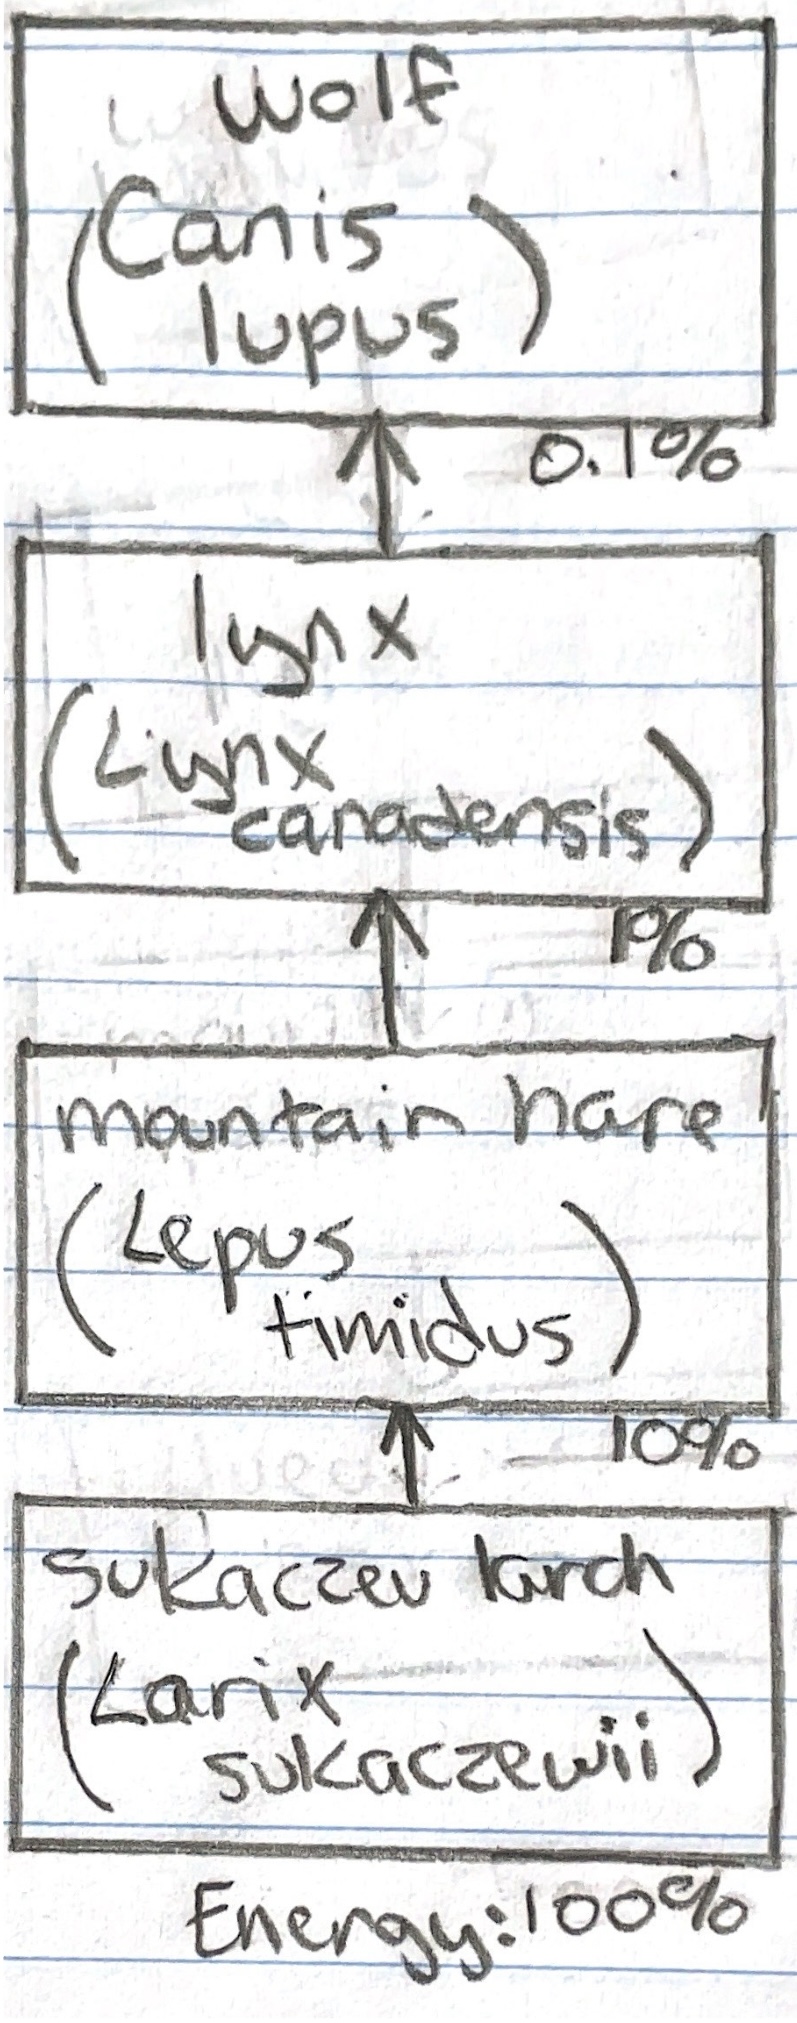 wolf
(Canis
lupus)
0.1%
lynx
(Lynx
canadensis)
1%
mountain hare
(Lepus
timidus)
10%
sukaczev larch
(Larix
sukaczewii)
Energy: 100%